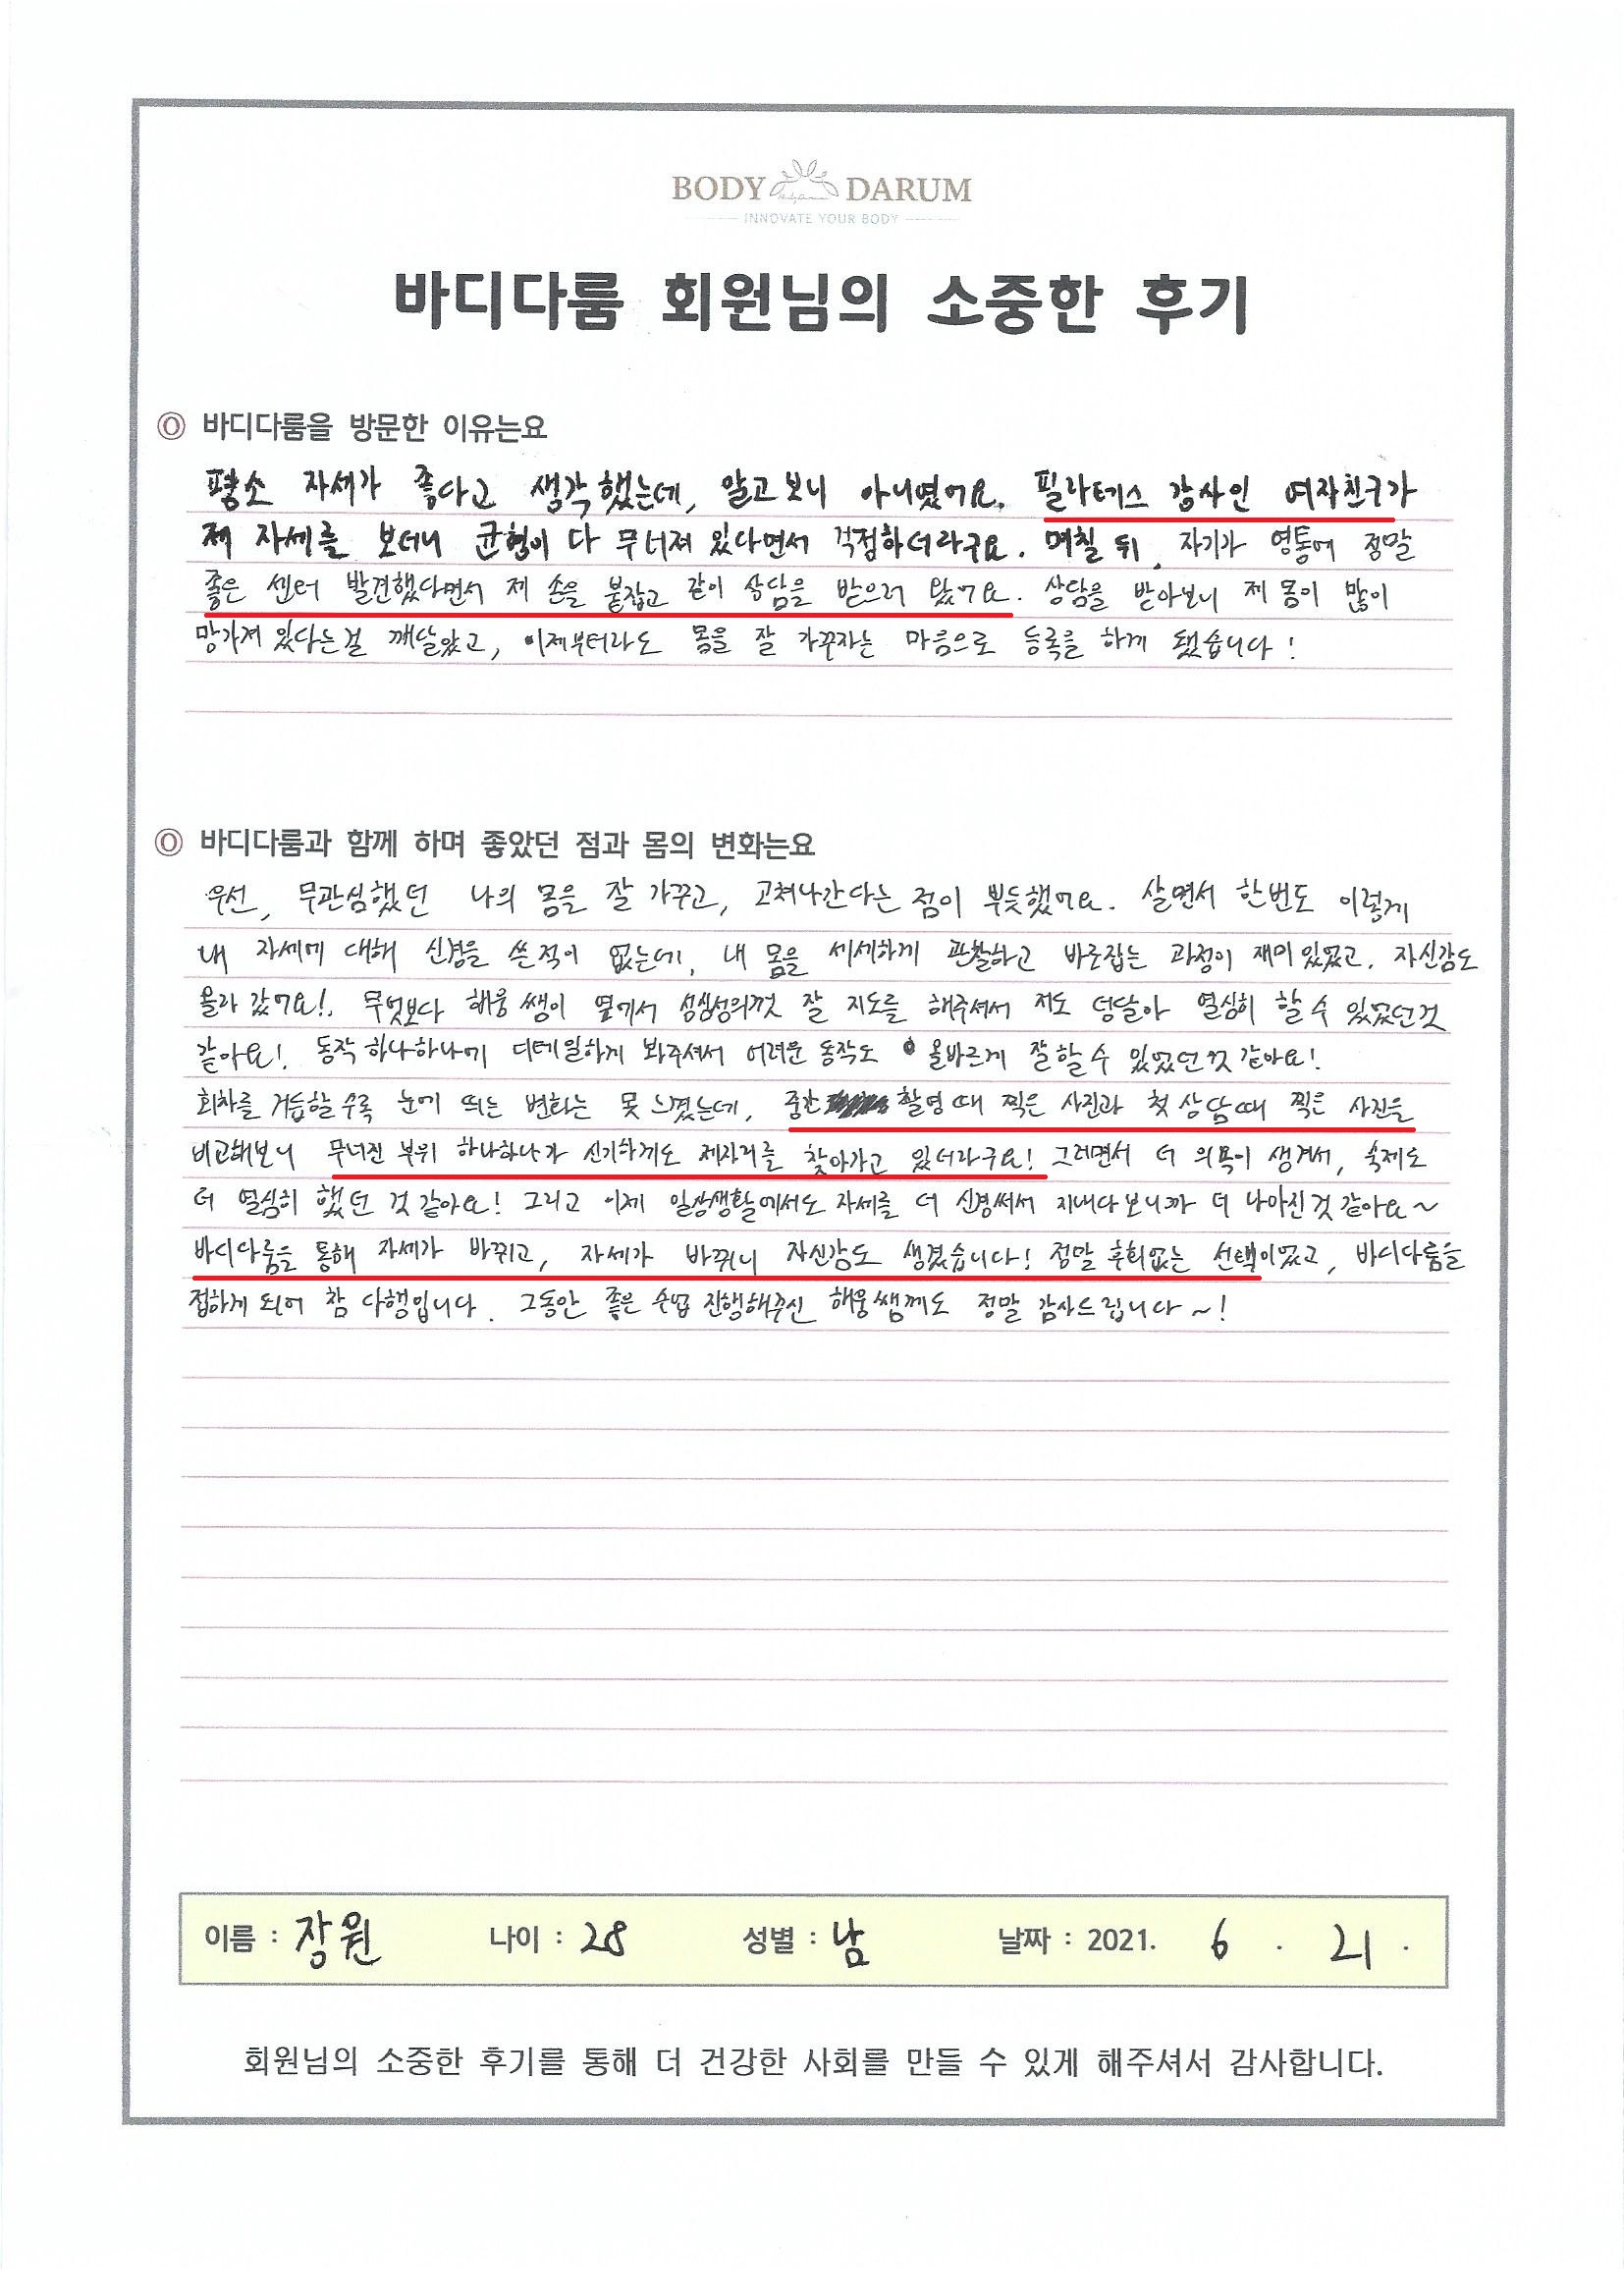 BODY DARUM
INNOVATE YOUR BODY
바디다룸 회원님의 소중한 후기
바디다룸을 방문한 이유는요
평소 자세가 좋다고 생각했는데, 알고보니 아니였어요. 필라테스 강사인 여자친구가
제 자세를 보더니 균형이 다 무너져 있다면서 걱정하더라구요. 며칠 뒤, 자기가 영통에 정말
좋은 센터 발견했다면서 제 손을 붙잡고 같이 상담을 받으러 왔어요. 상담을 받아보니 제 몸이 많이
망가져 있다는걸 깨달았고, 이제부터라도 몸을 잘 가꾸자는 마음으로 등록을 하게 됐습니다!
바디다룸과 함께 하며 좋았던 점과 몸의 변화는요
우선, 무관심했던 나의 몸을 잘 가꾸고, 고쳐나간다는 점이 뿌듯했어요. 살면서 한번도 이렇게
내 자세에 대해 신경을 쓴적이 없는데, 내 몸을 세세하게 관찰하고 바로잡는 과정이 재미있었고, 자신감도
올라 갔어요!. 무엇보다 해웅쌤이 옆에서 성심성의껏 잘 지도를 해주셔서 저도 덩달아 열심히 할 수 있었던것
같아요! 동작 하나하나에 디테일하게 봐주셔서 어려운 동작도 올바르게 잘할 수 있었던것 같아요!
회차를 거듭할수록 눈에 띄는 변화는 못 느꼈는데, 중간 촬영때 찍은 사진과 첫 상담때 찍은 사진을
비교해보니 무너진 부위 하나하나가 신기하게도 제자리를 찾아가고 있더라구요! 그러면서 더 의욕이 생겨서, 숙제도
더 열심히 했던 것 같아요! 그리고 이제 일상생활에서도 자세를 더 신경써서 지내다보니까 더 나아진것 같아요~
바디다룸을 통해 자세가 바뀌고, 자세가 바뀌니 자신감도 생겼습니다! 정말 후회없는 선택이었고, 바디다룸을
접하게 되어 참 다행입니다. 그동안 좋은 수업 진행해주신 해웅쌤께도 정말 감사드립니다~!
이름 : 장원 나이 : 28 성별 : 남 날짜 : 2021. 6 . 21 .
회원님의 소중한 후기를 통해 더 건강한 사회를 만들 수 있게 해주셔서 감사합니다.